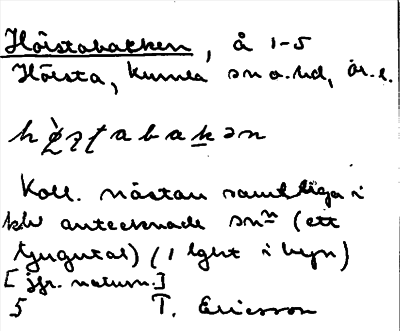 Höistabacken, å 1-5
Höista, Kumla sn o. hd, Ör. l.
Koll. nästan samtliga i
antecknade snⁿ (ett
tjugutal) (1 lght i byn)
[jfr. naturn.]
5 T. Ericsson